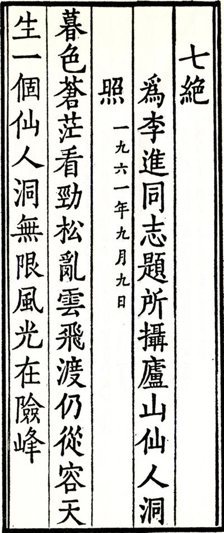 七絶
為李進同志題所攝廬山仙人洞
照
一九六一年九月九日
暮色蒼茫看勁松亂雲飛渡仍從容天
生一個仙人洞無限風光在險峰